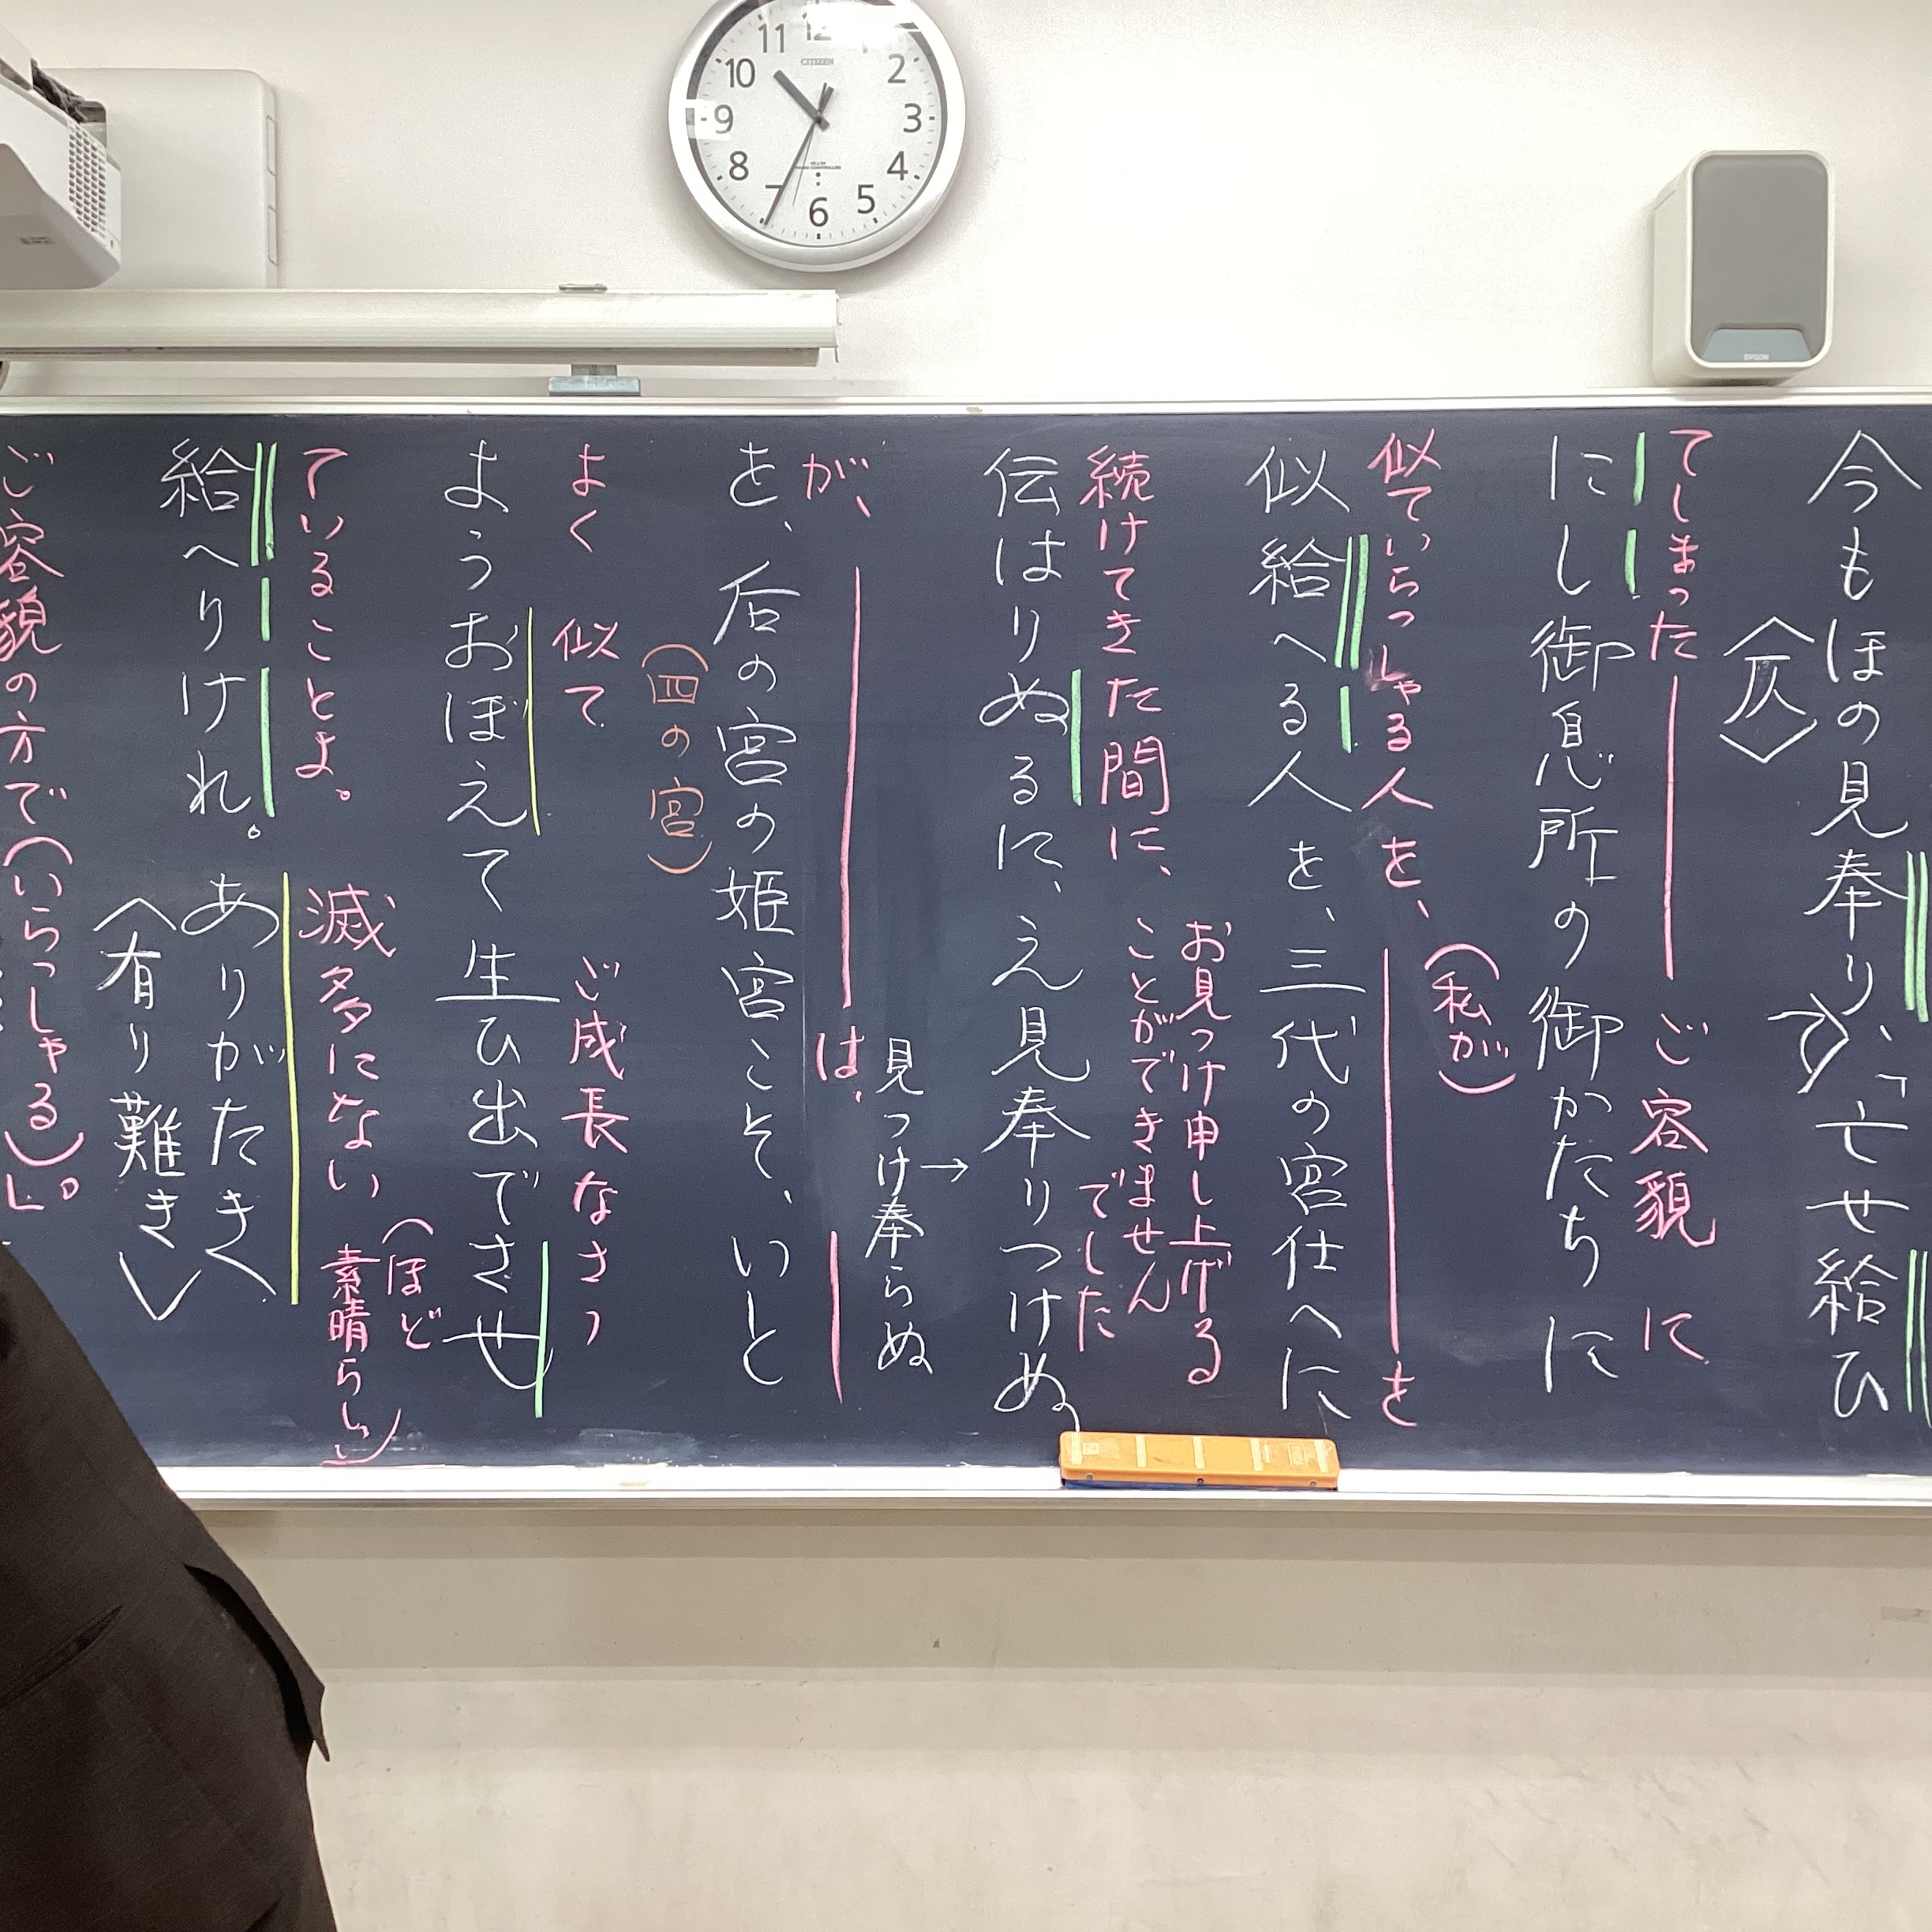 11 12 2 3 4 5 6 7 8 9 10
CITIZEN
EPSON
今もほの見奉りて、「亡せ給ひ
〈仄〉
てしまった ご容貌に
にし御息所の御かたちに
(私が)
似ていらっしゃる人を、 を
似給へる人を、三代の宮仕へに
続けてきた間に、 お見つけ申し上げる
ことができません
でした
伝はりぬるに、え見奉りつけぬ
→見つけ奉らぬ
が、 は、
を、后の宮の姫宮こそ、いと
(四の宮)
よく似て ご成長なさっ
ようおぼえて生ひ出でさせ
(ほど
素晴らしい)
ていることよ。 滅多にない
給へりけれ。ありがたき
〈有り難き〉
ご容貌の方で(いらっしゃる)」。